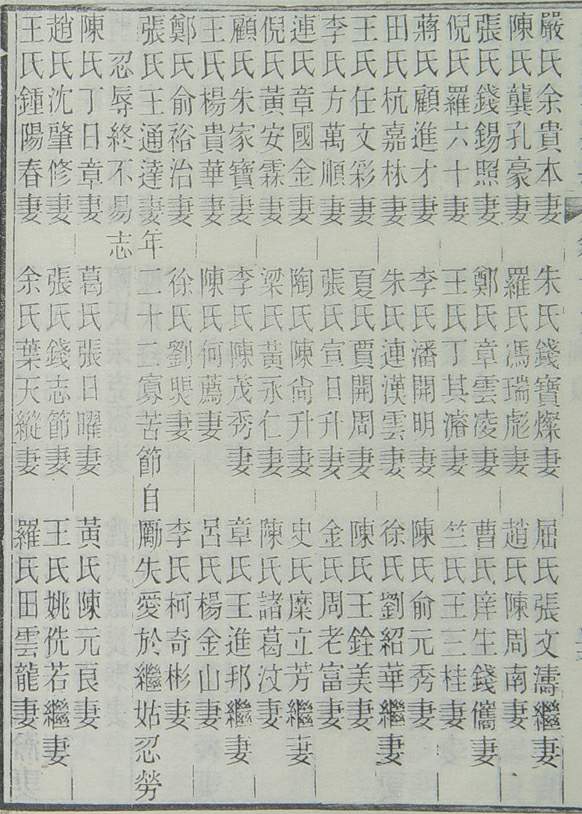 嚴氏余貴本妻 朱氏錢寶燦妻 屈氏張文濤繼妻
陳氏龔孔豪妻 羅氏馮瑞彪妻 趙氏陳周南妻
張氏錢錫照妻 鄭氏章雲凌妻 曹氏庠生錢儁妻
倪氏羅六十妻 王氏丁其濬妻 竺氏王三桂妻
蔣氏顧進才妻 李氏潘開明妻 陳氏俞元秀妻
田氏杭嘉林妻 朱氏連漢雲妻 徐氏劉紹華繼妻
王氏任文彩妻 夏氏賈開周妻 陳氏王銓美妻
李氏方萬順妻 張氏宣日升妻 金氏周老富妻
連氏章國金妻 陶氏陳尚升妻 史氏糜立芳繼妻
倪氏黃安霖妻 梁氏黃永仁妻 陳氏諸葛汶妻
顧氏朱家寶妻 李氏陳茂秀妻 章氏王進邦繼妻
王氏楊貴華妻 陳氏何薦妻 呂氏楊金山妻
鄭氏俞裕治妻 徐氏劉裴妻 李氏柯奇彬妻
張氏王通達妻年二十二寡苦節自勵失愛於繼姑忍勞
忍辱終不易志
陳氏丁日章妻 葛氏張日曜妻 黃氏陳元良妻
趙氏沈肇修妻 張氏錢志節妻 王氏姚侁若繼妻
王氏鍾陽春妻 余氏葉天縱妻 羅氏田雲龍妻